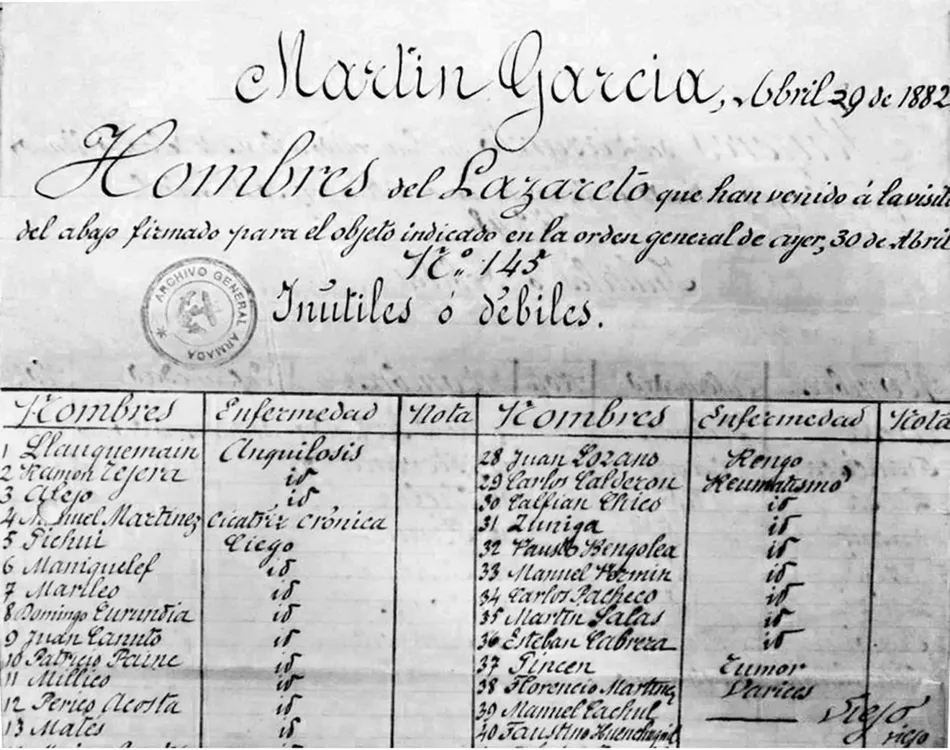 Martin Garcia, Abril 29 de 1882
Hombres del Lazareto que han venido á la visit
del abajo firmado para el objeto indicado en la orden general de ayer, 30 de Abril
Nº 145
ARCHIVO GENERAL ARMADA
Inutiles ó débiles.
Nombres Enfermedad Nota Nombres Enfermedad Nota
1 Llauquemain Anquilosis 28 Juan Lozano Rengo
2 Ramon Tejera id 29 Carlos Calderon Reumatismo
3 Alejo id 30 Calfian Chico id
4 Manuel Martinez Cicatriz Crónica 31 Zuniga id
5 Pichui Ciego 32 Fausto Rengolea id
6 Maniquelef id 33 Manuel Fermin id
7 Marileo id 34 Carlos Pacheco id
8 Domingo Curundia id 35 Martin Salas id
9 Juan Cannto id 36 Esteban Cabrera id
10 Patricio Paine id 37 Pincen Tumor
11 Millico id 38 Florencio Martinez Varices
12 Perico Acosta id 39 Manuel Cachul Viejo
13 Matés id 40 Faustino viejo